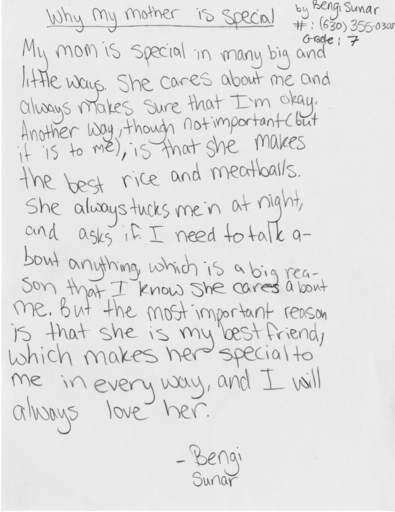 Why My mother is special
by Bengi Sunar
#: (630) 355-0308
Grade: 7
My mom is special in many big and
little ways. She cares about me and
always makes sure that I'm okay.
Another way, though not important (but
it is to me), is that she makes
the best rice and meatballs.
She always tucks me in at night,
and asks if I need to talk a-
bout anything, which is a big rea-
son that I know she cares about
me. But the most important reason
is that she is my best friend,
which makes her special to
me in every way, and I will
always love her.
- Bengi
Sunar